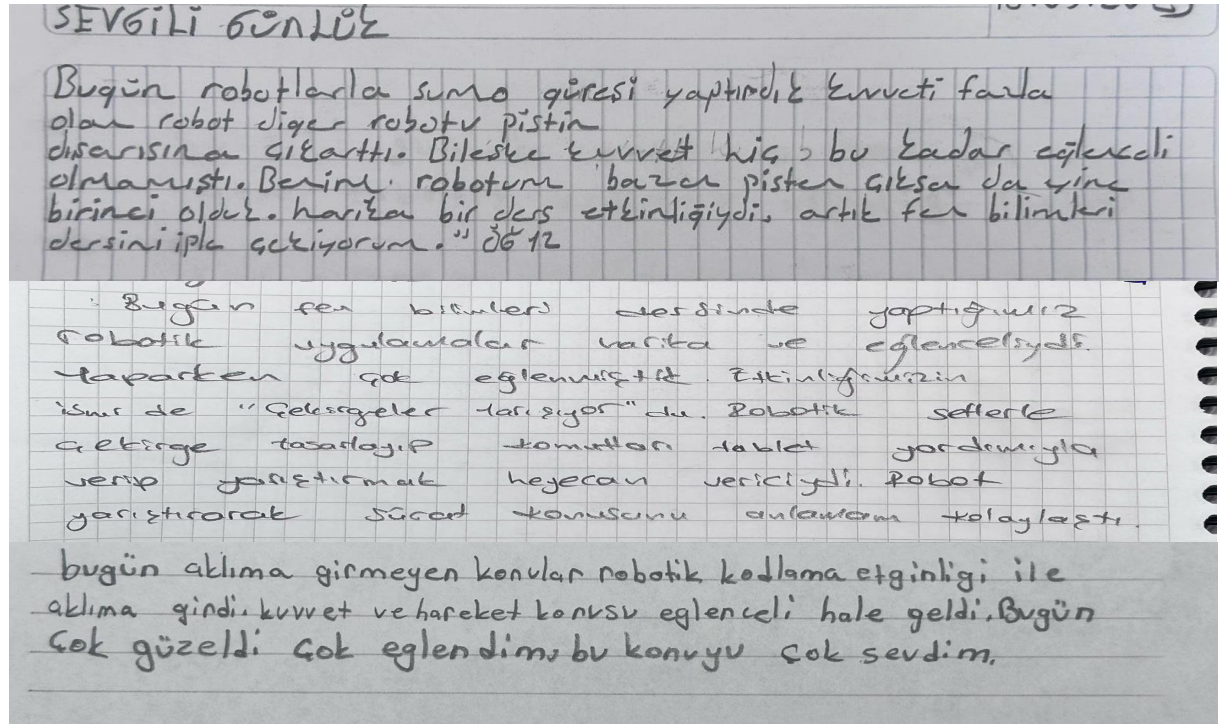 SEVGİLİ GÜNLÜK
Bugün robotlarla sumo güresi yaptırdık kuvveti fazla
olan robot diger robotu pistin
dısarısına çıkarttı. Bileske kuvvet hiç bu kadar eğlenceli
olmamıştı. Benim robotum bazen pisten çıksa da yine
birinci olduk. harika bir ders etkinliğiydi. artık fen bilimleri
dersini iple çekiyorum." ÖĞ 12
Bugün fen bilimleri dersinde yaptığımız
robotik uygulamalar harika ve eğlenceliydi.
Yaparken çok eğlenmiştik. Etkinliğimizin
ismi de "Çekirgeler Yarışıyor"du. Robotik setlerle
çekirge tasarlayıp komutları tablet yardımıyla
verip yarıştırmak heyecan vericiydi. Robot
yarıştırarak sürat konusunu anlamam kolaylaştı.
bugün aklıma girmeyen konular robotik kodlama etginligi ile
aklıma girdi. kuvvet ve hareket konusu eglenceli hale geldi. Bugün
çok güzeldi çok eglendim, bu konuyu çok sevdim.